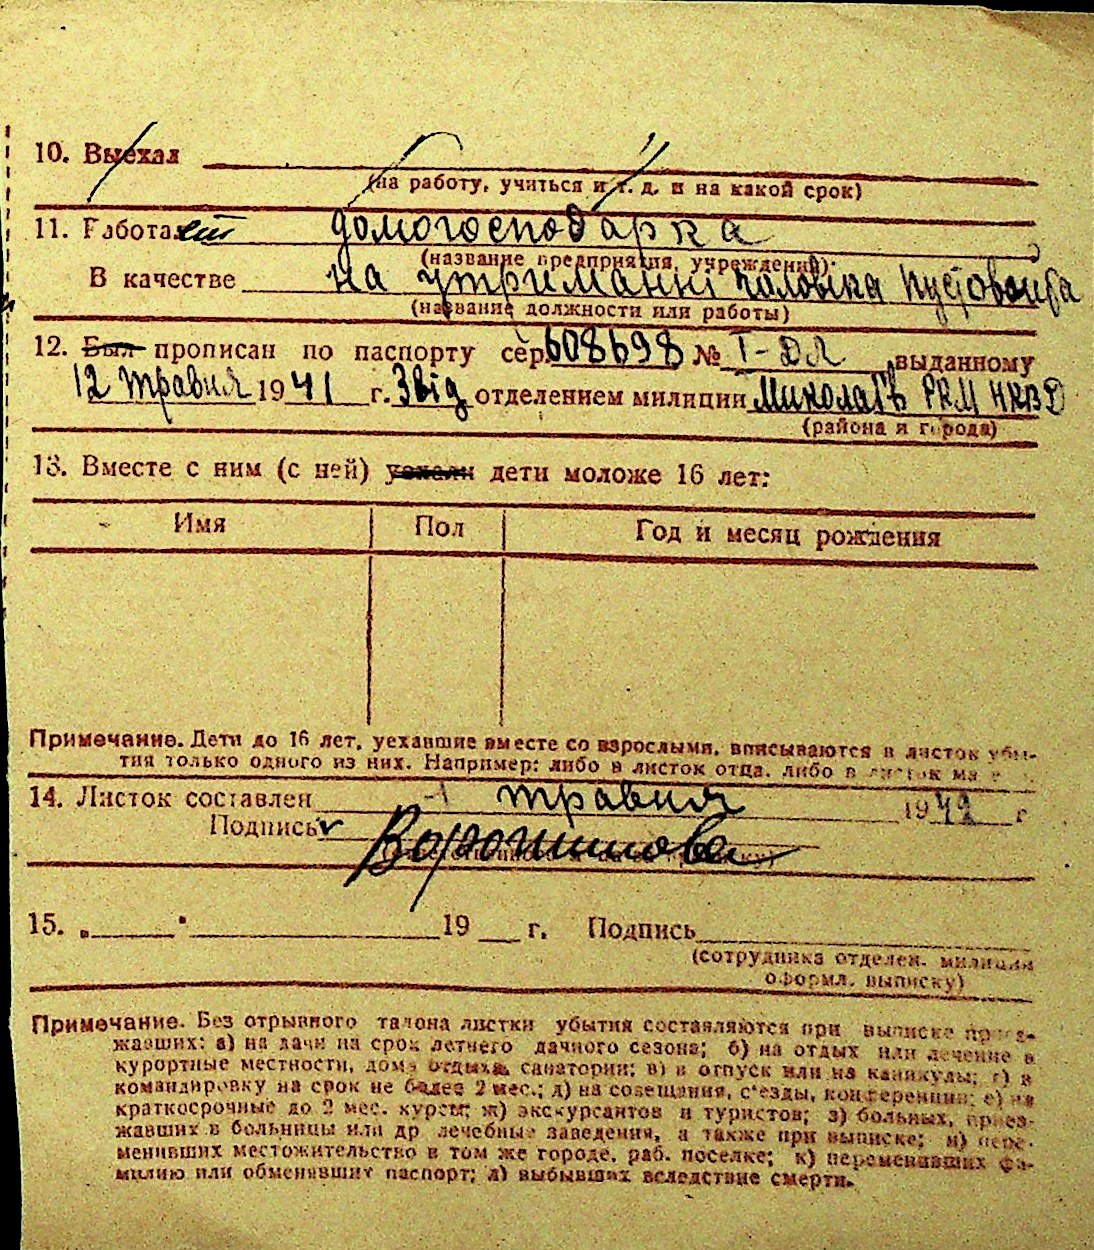 10. Выехал
(на работу, учиться и т. д. и на какой срок)
11. Работает домогосподарка
(название предприятия, учреждения)
В качестве на утриманні чоловіка Пустовойта
(название должности или работы)
12. Был прописан по паспорту сер. 608698 № I-ДЛ выданному
12 травня 1941 г. 3 від отделением милиции Миколаїв РКМ НКВД
(района и города)
13. Вместе с ним (с ней) уехали дети моложе 16 лет:
Имя Пол Год и месяц рождения
Примечание. Дети до 16 лет, уехавшие вместе со взрослыми, вписываются в листок убы-
тия только одного из них. Например: либо в листок отца, либо в листок ма
14. Листок составлен 1 травня 1942 г
Подпись
15. „ " 19 г. Подпись
(сотрудника отделен. милиции
оформл. выписку)
Примечание. Без отрывного талона листки убытия составляются при выписке приез-
жавших: а) на дачи на срок летнего дачного сезона; б) на отдых или лечение в
курортные местности, дома отдыха, санатории; в) в отпуск или на каникулы; г) в
командировку на срок не более 2 мес.; д) на совещания, с'езды, конференции; е) на
краткосрочные до 2 мес. курсы; ж) экскурсантов и туристов; з) больных, приез-
жавших в больницы или др лечебные заведения, а также при выписке; и) пере-
менивших местожительство в том же городе, раб. поселке; к) переменивших фа-
милию или обменявших паспорт; л) выбывших вследствие смерти.